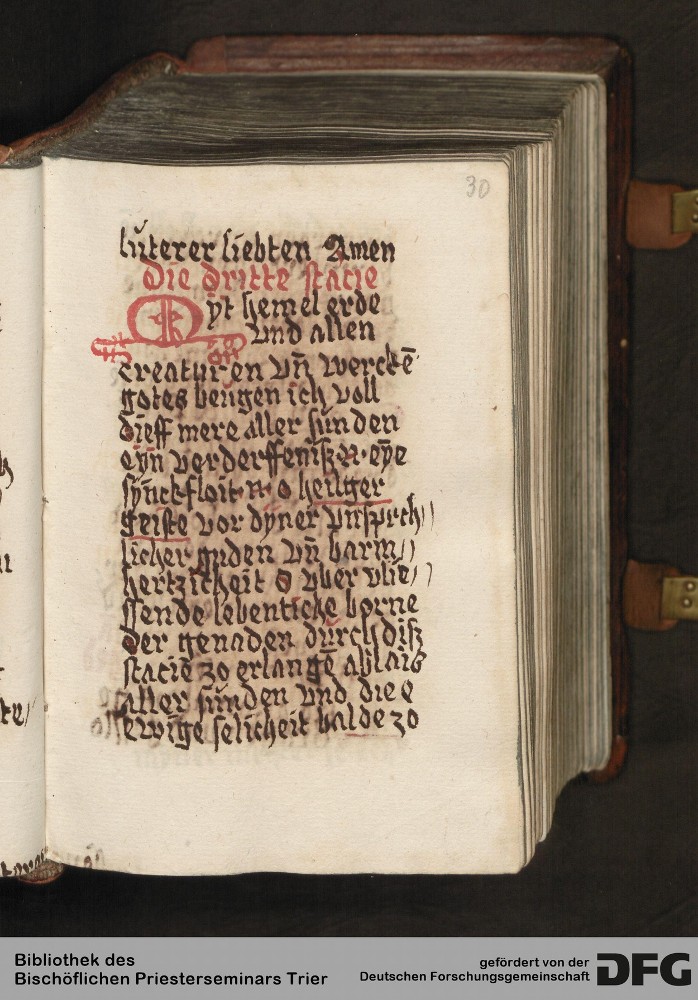 30
lůterer liebten Amen
Die dritte stacie
Myt hemel erde
vnd allen
creaturen vn̄ werckē
gotes beugen ich voll
dieff mere aller sunden
eyn verderffenisz n. eyē
synckfloit n. o heilger
geiste vor dyner vnsprch//
licher gnden vn̄ barm//
hertzickeit o vber vlie//
ssende lebenticke borne
der genaden durch disz
stacie zo erlangē ablais
aller sunden vnd die e
ewige selicheit balde zo
Bibliothek des
Bischöflichen Priesterseminars Trier
gefördert von der
Deutschen Forschungsgemeinschaft DFG